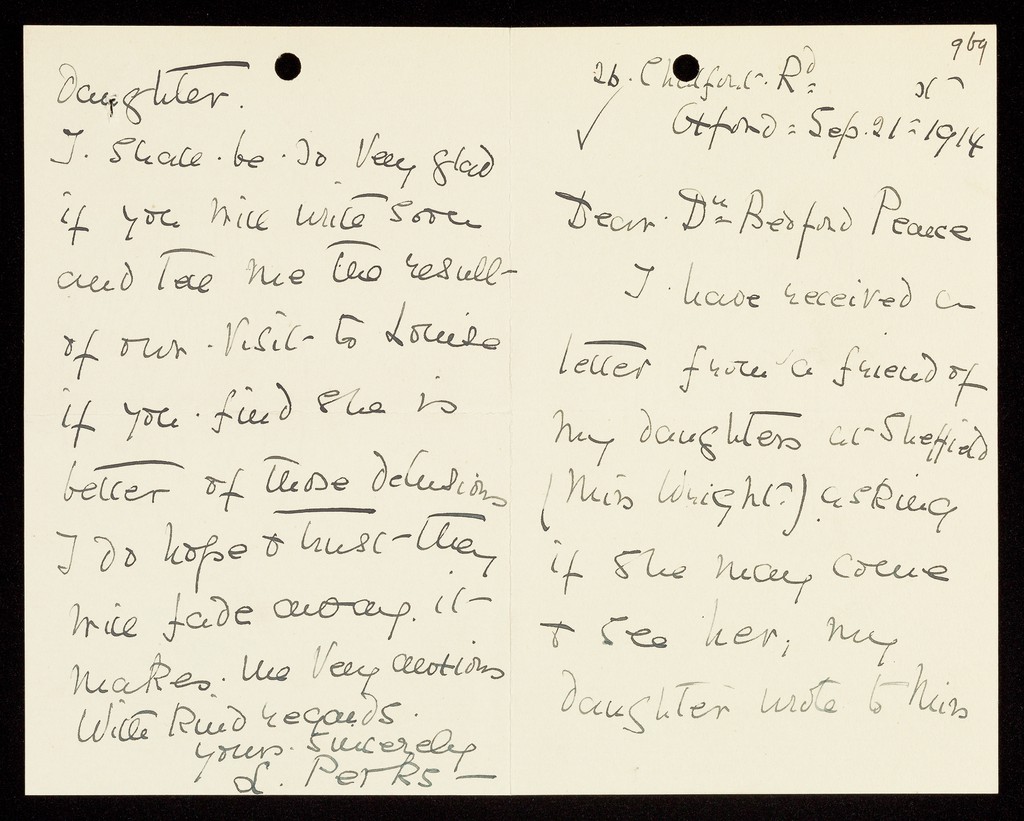 969
26. Chalfont. Rd
Oxford = Sep. 21= 1914
Dear. Dr= Bedford Pearce
I. have received a
letter from a friend of
my daughters at Sheffield
(Miss Wright.) asking
if she may come
& see her, my
daughter wrote to Miss
Daughter.
I. shall. be. so very glad
if you will write soon
and tell me the result-
of our. visit- to Louise
if you. find she is
better of those delusions
I do hope & trust- they
will fade away. it-
makes. me very anxious
With kind regards.
yours. Sincerely
L. Perks-